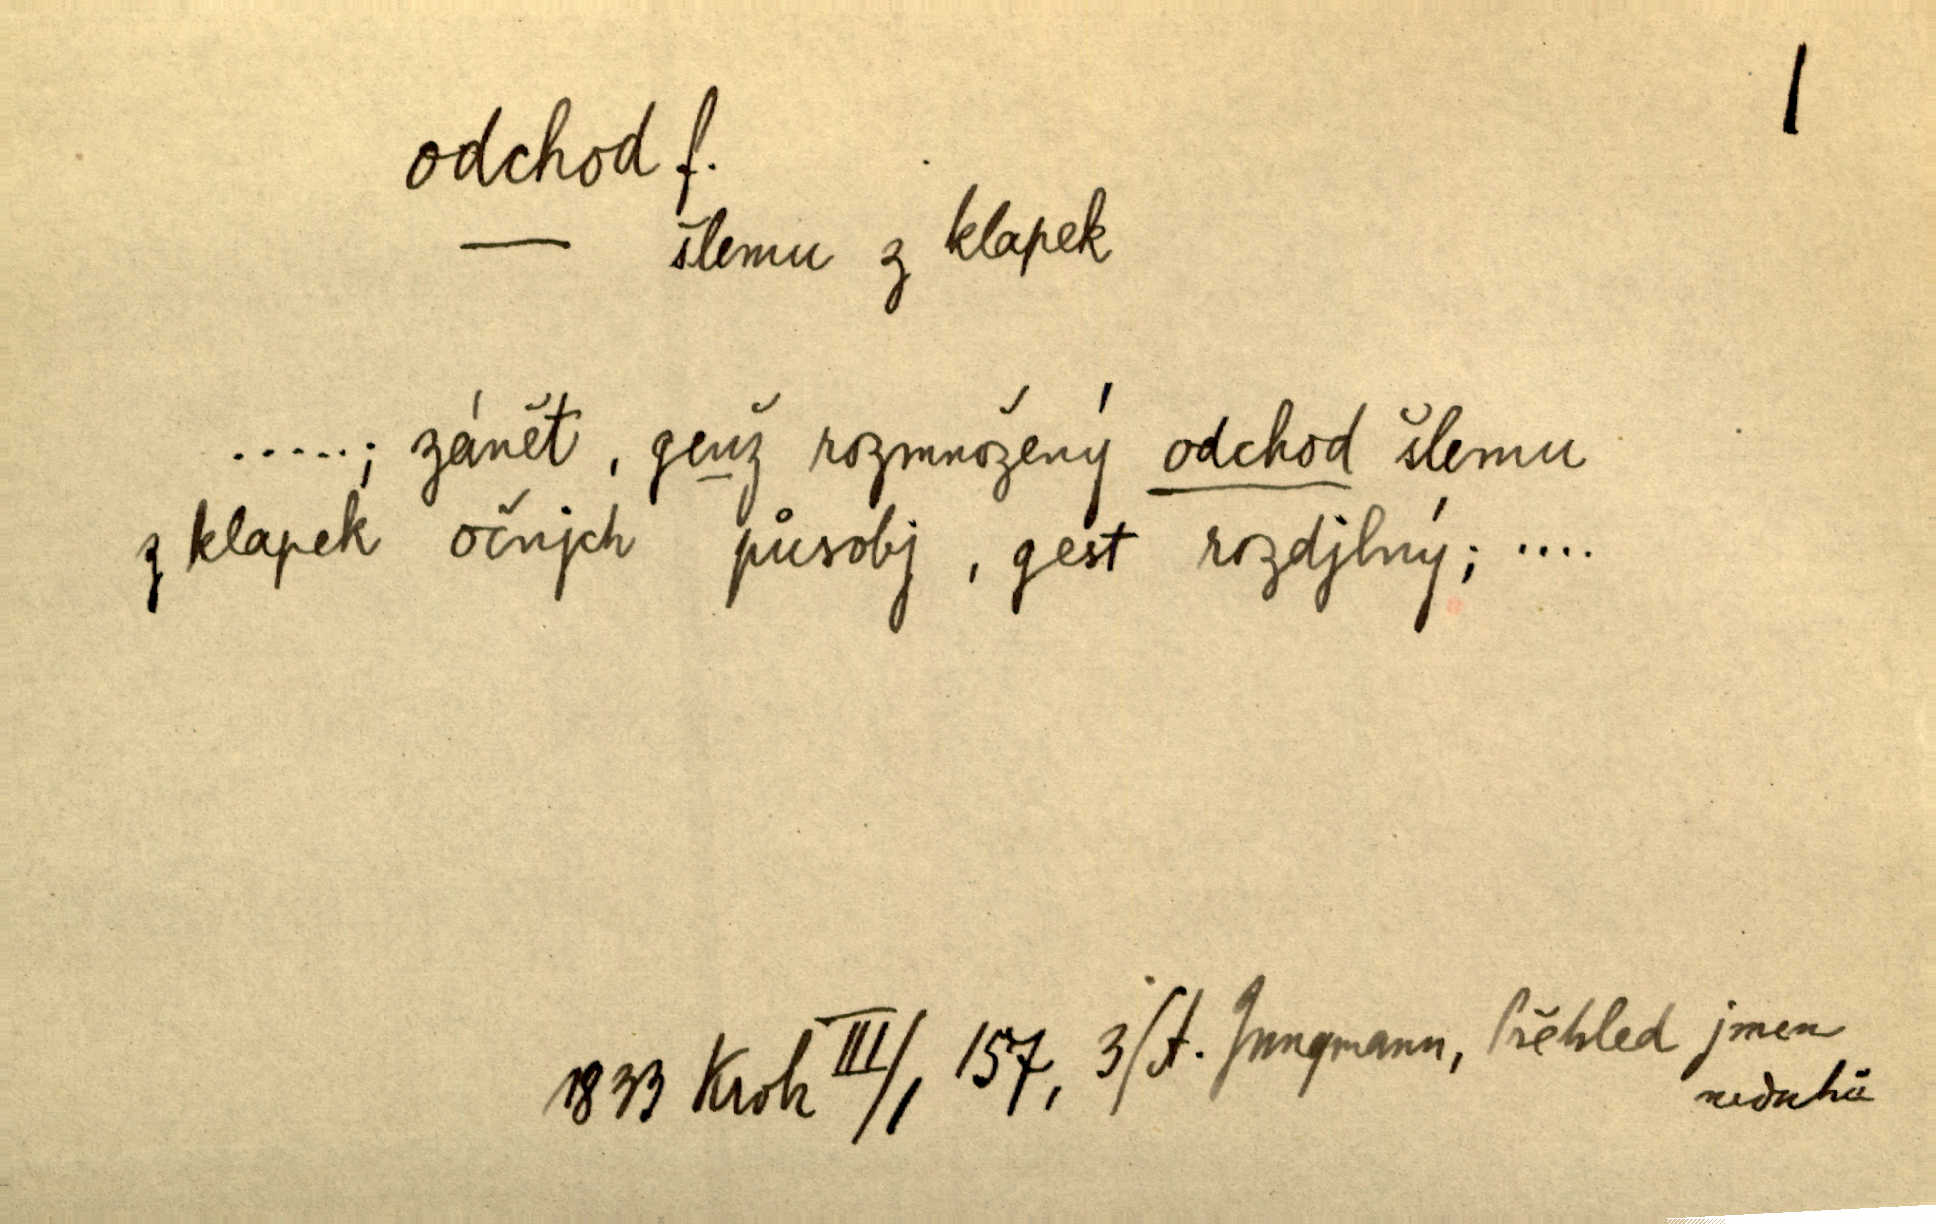 1
odchod f.
— šlemu z klapek
.....; zánět, genž rozmnožený odchod šlemu
z klapek očnjch působj, gest rozdjlný; ....
1833 Krok III/1, 157, 3/A. Jungmann, Přehled jmen
neduhů